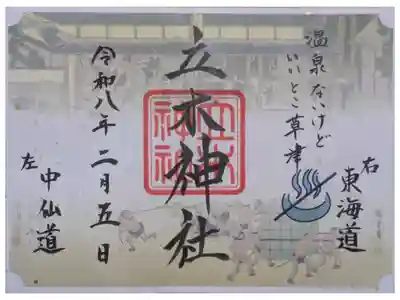 右
東海道
温泉ないけど
いいとこ草津
立木神社
令和八年二月五日
左
中仙道